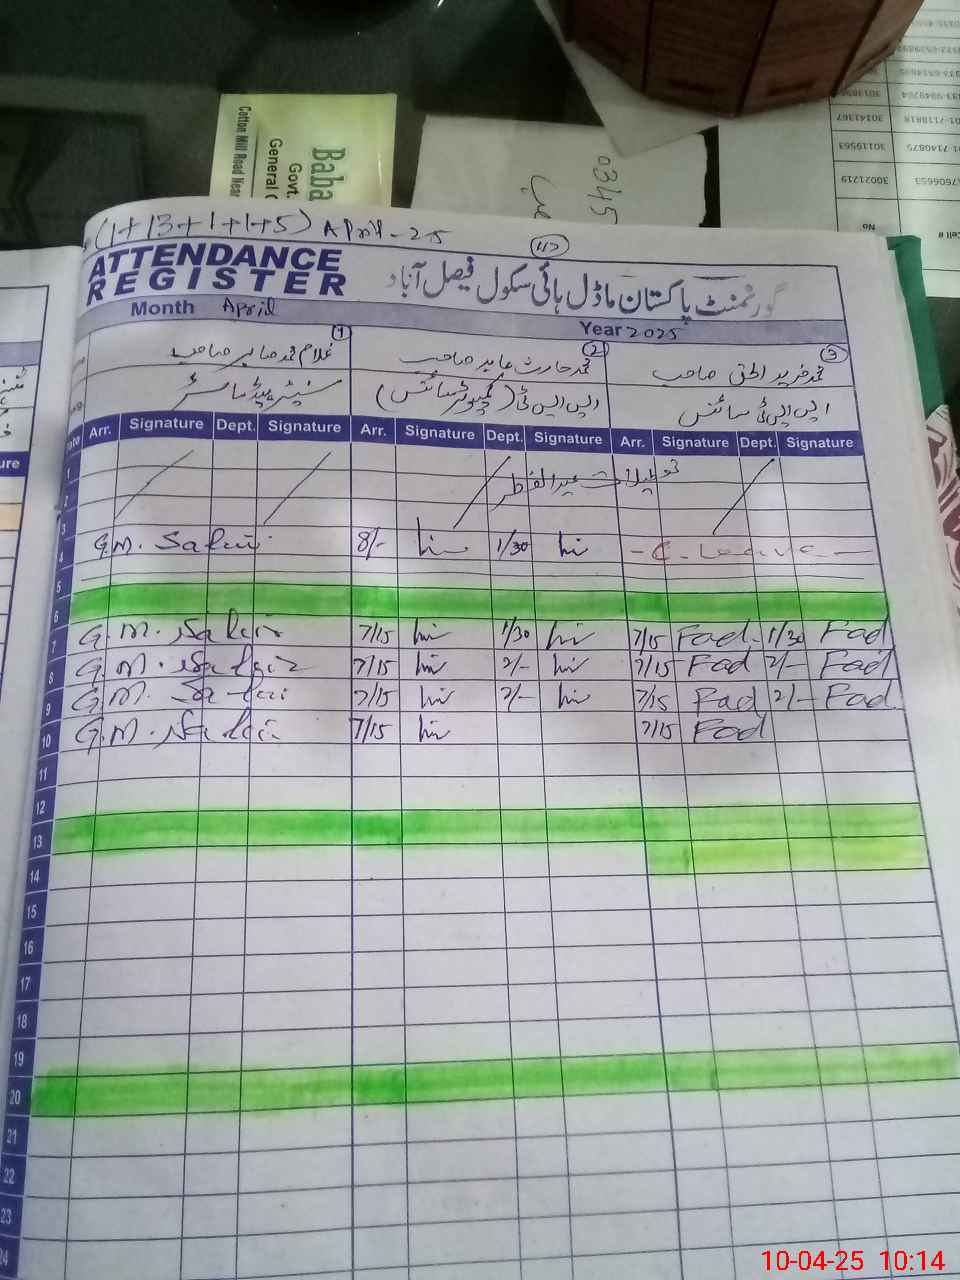 Baba
Govt.
General
Cotton Mill Road Near
0345
Cell #
No
17606653
30021719
01-7140875
30119563
01-7118818
30141367
(1+13+1+1+5) April-25
ATTENDANCE
REGISTER
گورنمنٹ پاکستان ماڈل ہائی سکول فیصل آباد
Month April
Year 2025
1
2
3
غلام محمد صابر صاحب
محمد حارث عابد صاحب
محمد فرید الحق صاحب
سنیئر ہیڈماسٹر
ایس ایس ٹی (کمپیوٹر سائنس)
ایس ایس ٹی سائنس
Date Arr. Signature Dept. Signature Arr. Signature Dept. Signature Arr. Signature Dept. Signature
1
2 تعطیلات عیدالفطر
3
4 G.M. Sabir 8/- 1/30 - C. Leave -
5
6
7 G.M. Sabir 7/15 1/30 7/15 Fad 1/30 Fad
8 G.M. Sabir 7/15 2/- 7/15 Fad 2/- Fad
9 G.M. Sabir 7/15 2/- 7/15 Fad 2/- Fad
10 G.M. Sabir 7/15 7/15 Fad
11
12
13
14
15
16
17
18
19
20
21
22
23
24
10-04-25 10:14